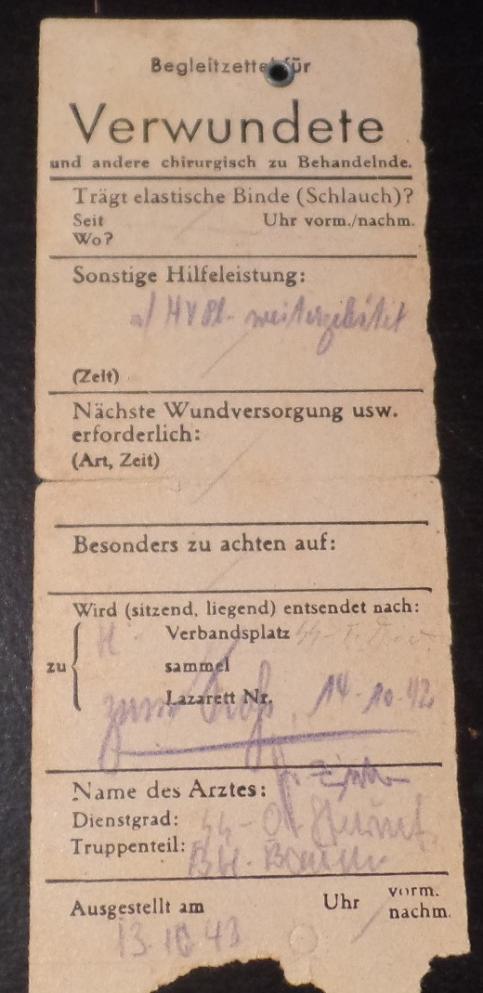 Begleitzettel für
Verwundete
und andere chirurgisch zu Behandelnde.
Trägt elastische Binde (Schlauch)?
Seit Uhr vorm./nachm.
Wo?
Sonstige Hilfeleistung:
a/ HVPl. weitergeleitet
(Zeit)
Nächste Wundversorgung usw.
erforderlich:
(Art, Zeit)
Besonders zu achten auf:
Wird (sitzend, liegend) entsendet nach:
H Verbandsplatz
zu sammel
Lazarett Nr.
zum 14.10.42
Name des Arztes:
Dienstgrad:
Truppenteil:
Ausgestellt am Uhr vorm.
nachm.
13.10.43